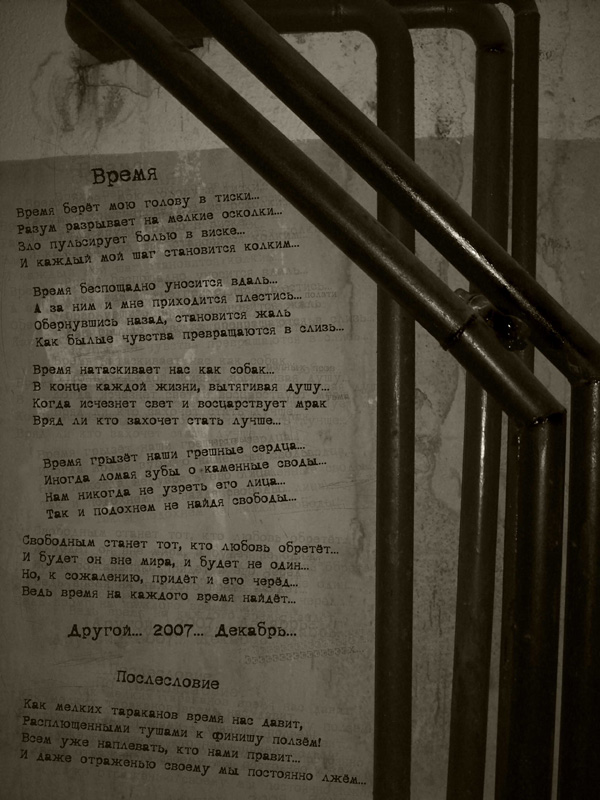 Время
Время берёт мою голову в тиски...
Разум разрывает на мелкие осколки...
Зло пульсирует болью в виске...
И каждый мой шаг становится колким...
Время беспощадно уносится вдаль...
А за ним и мне приходится плестись...
Обернувшись назад, становится жаль
Как былые чувства превращаются в слизь...
Время натаскивает нас как собак...
В конце каждой жизни, вытягивая душу...
Когда исчезнет свет и восцарствует мрак
Вряд ли кто захочет стать лучше...
Время грызёт наши грешные сердца...
Иногда ломая зубы о каменные своды...
Нам никогда не узреть его лица...
Так и подохнем не найдя свободы...
Свободным станет тот, кто любовь обретёт...
И будет он вне мира, и будет не один...
Но, к сожалению, придёт и его черёд...
Ведь время на каждого время найдёт...
Другой... 2007... Декабрь...
Послесловие
Как мелких тараканов время нас давит,
Расплющенными тушами к финишу ползём!
Всем уже наплевать, кто нами правит...
И даже отраженью своему мы постоянно лжём...